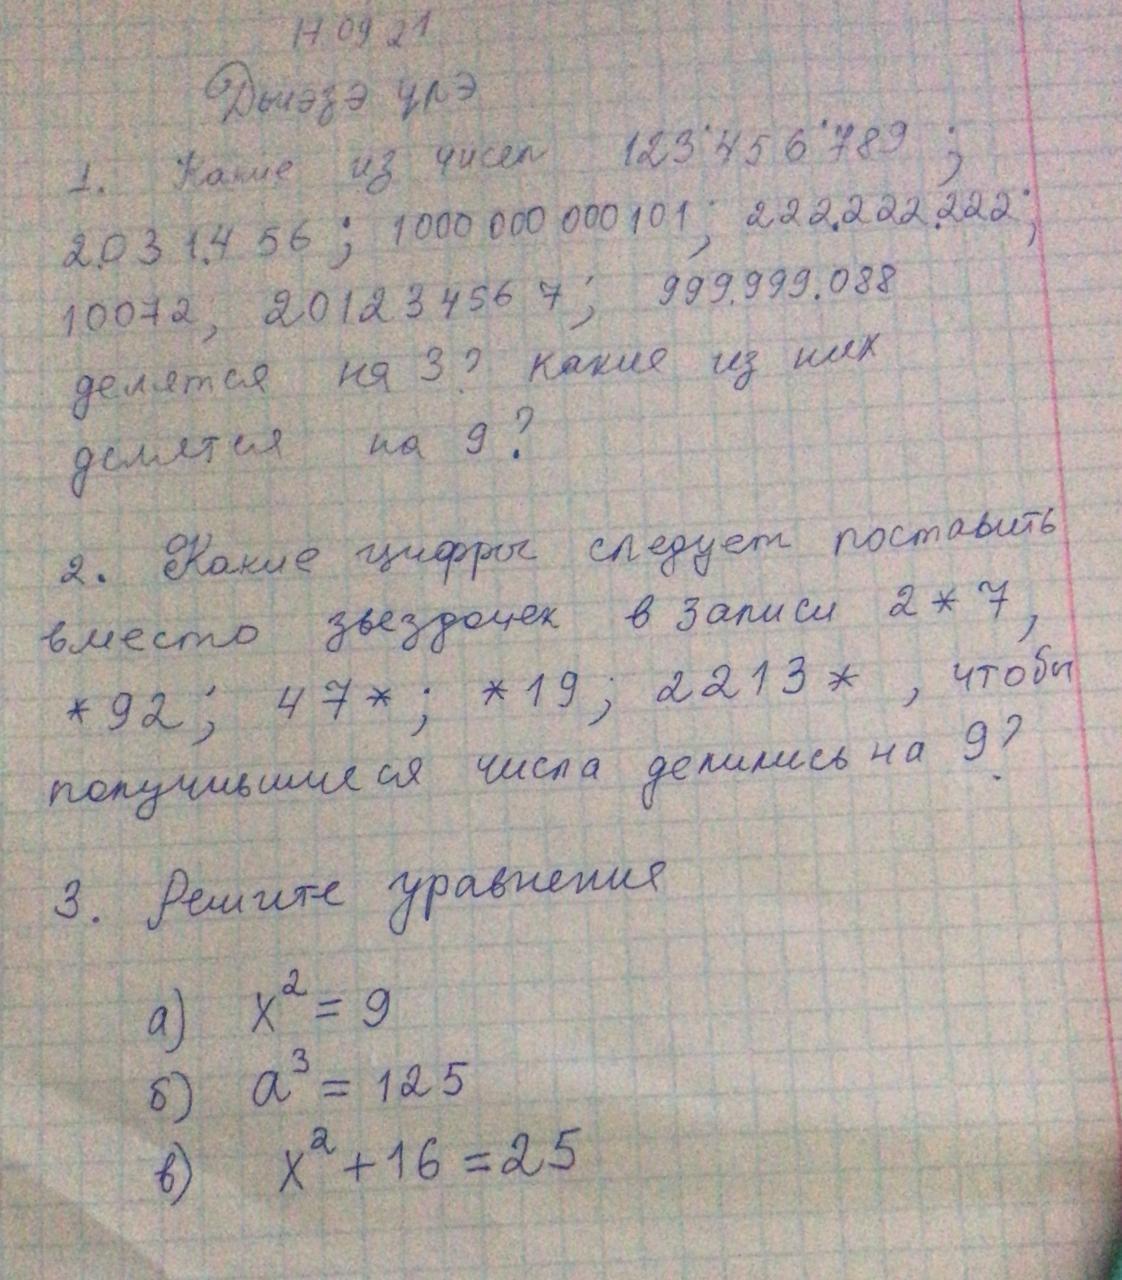 17 09 21
Дьиэҕэ үлэ
1. Какие из чисел 123'456'789;
2.031.456; 1000 000 000 101; 222.222.222;
10072; 201234567; 999.999.088
делятся на 3? какие из них
делятся на 9?
2. Какие цифры следует поставить
вместо звездочек в записи 2*7,
*92; 47*; *19; 2213*, чтобы
получившиеся числа делились на 9?
3. Решите уравнения
а) x² = 9
б) a³ = 125
в) x² + 16 = 25